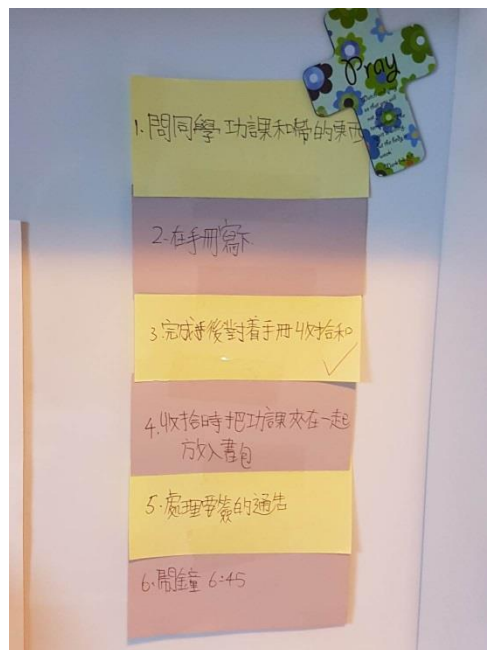 Pray
1. 問同學功課和帶的東西
2. 在手冊寫下
3. 完成後對着手冊收拾和
4. 收拾時把功課夾在一起
放入書包
5. 處理要簽的通告
6. 鬧鐘 6:45